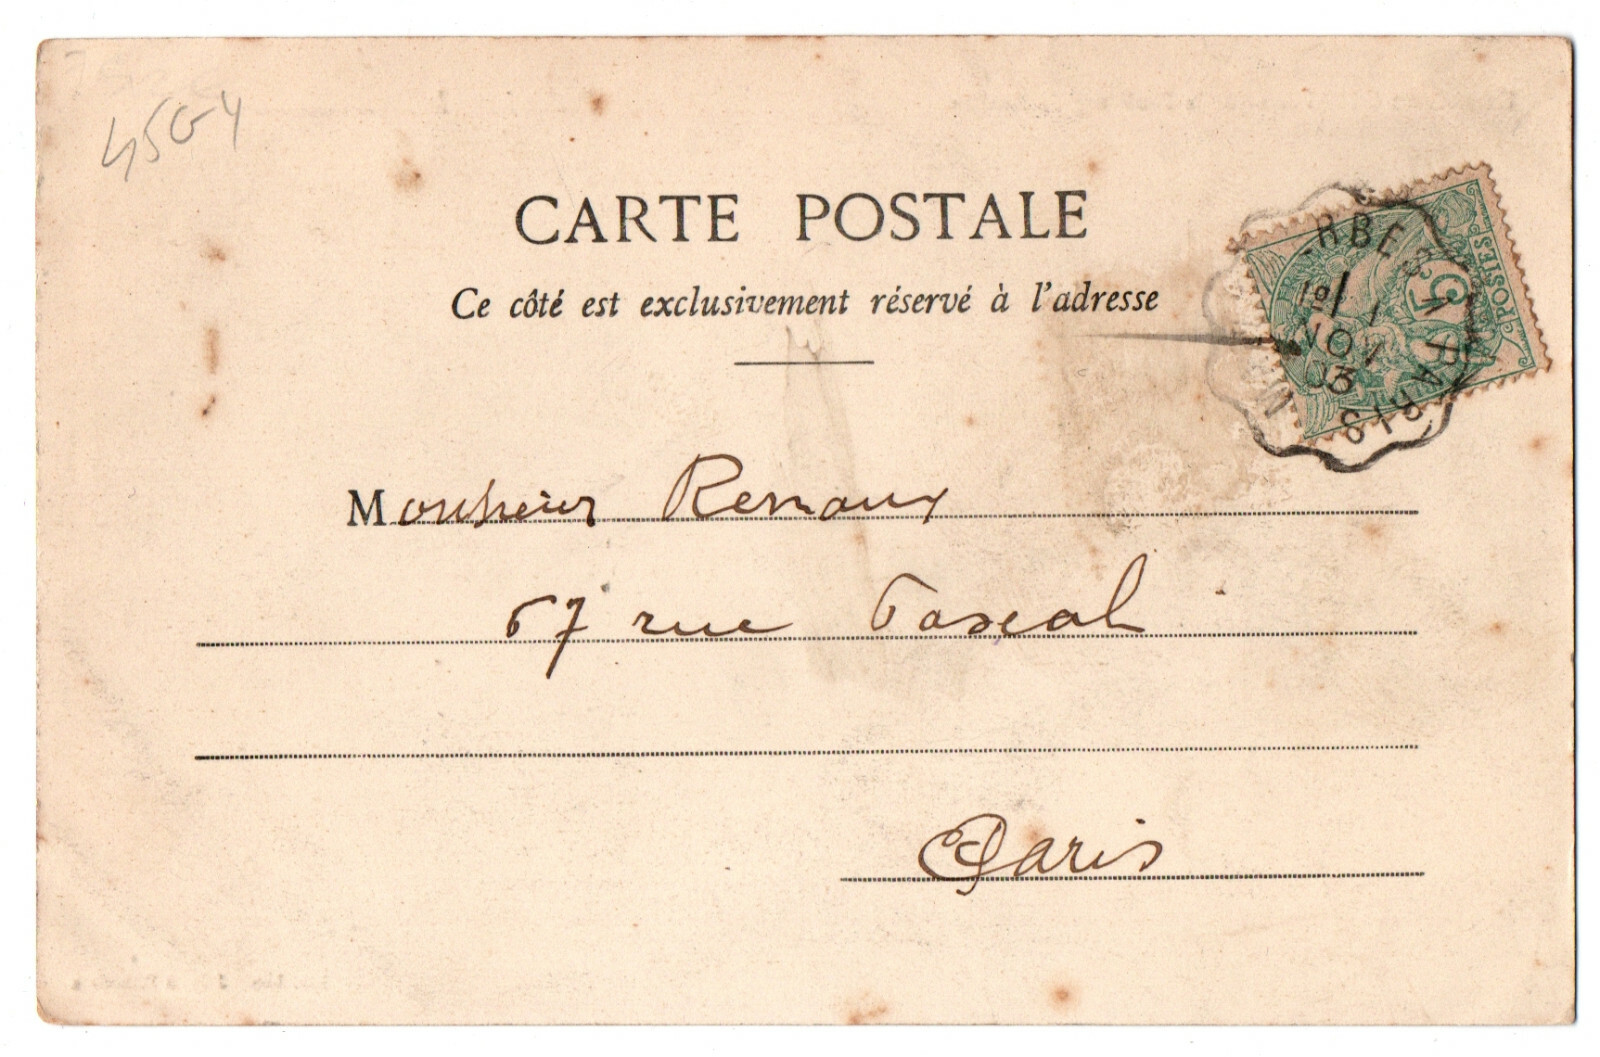 45G4
CARTE POSTALE
Ce côté est exclusivement réservé à l'adresse
POSTES
5
RBES A PARIS
1º/
1
NOV
03
Monsieur Renaux
67 rue Pascal
Paris